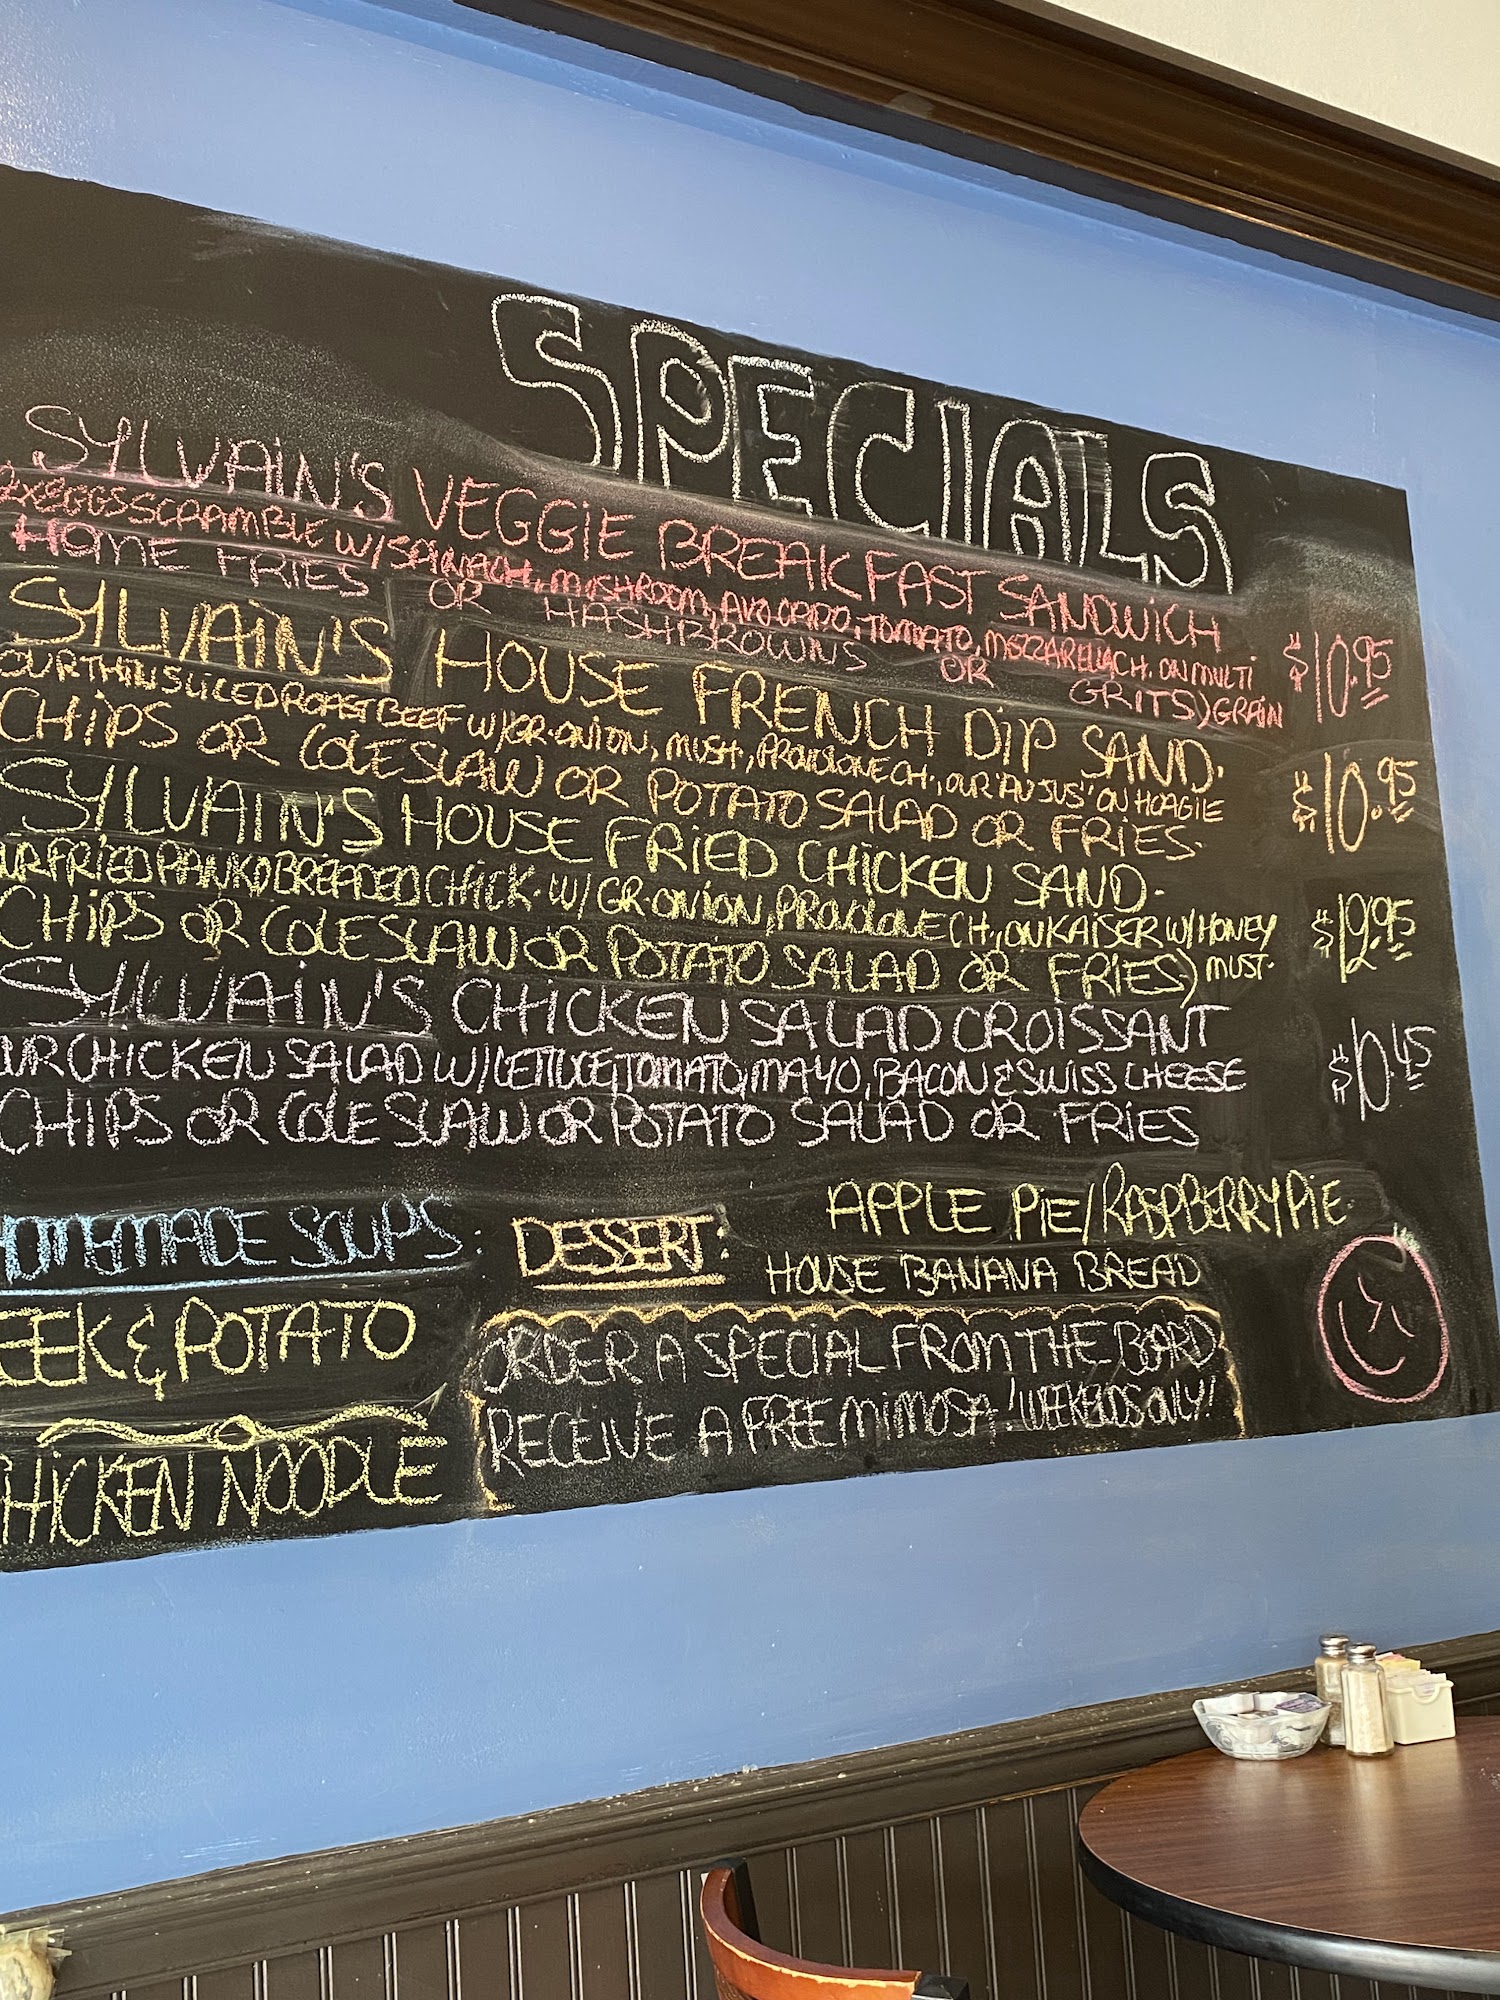 SPECIALS
SYLVAIN'S VEGGIE BREAKFAST SANDWICH
2XEGGS SCRAMBLE W/SPINACH, MUSHROOM, AVOCADO, TOMATO, MOZZARELLA CH. ON MULTI GRAIN
HOME FRIES OR HASHBROWNS OR GRITS)
$10.95
SYLVAIN'S HOUSE FRENCH DIP SAND.
OUR THIN SLICED ROAST BEEF W/GR.ONION, MUSH, PROVOLONE CH., OUR "AU JUS" ON HOAGIE
CHIPS OR COLE SLAW OR POTATO SALAD OR FRIES.
$10.95
SYLVAIN'S HOUSE FRIED CHICKEN SAND.
UR FRIED PANKO BREADED CHICK. W/ GR.ONION, PROVOLONE CH., ON KAISER W/HONEY MUST.
CHIPS OR COLE SLAW OR POTATO SALAD OR FRIES)
$12.95
SYLVAIN'S CHICKEN SALAD CROISSANT
UR CHICKEN SALAD W/LETTUCE, TOMATO, MAYO, BACON & SWISS CHEESE
CHIPS OR COLE SLAW OR POTATO SALAD OR FRIES
$10.45
OMEMADE SOUPS:
EEK & POTATO
CHICKEN NOODLE
DESSERT:
APPLE PIE/RASPBERRY PIE
HOUSE BANANA BREAD
ORDER A SPECIAL FROM THE BOARD
RECEIVE A FREE MIMOSA! WEEKENDS ONLY!